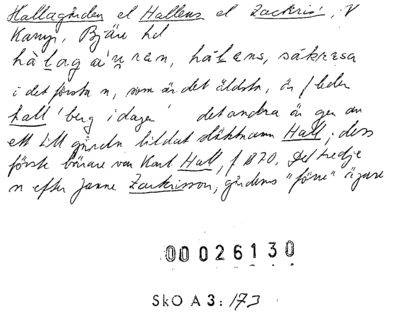 Hallagården el Hallens el Zackris', V
Karup, Bjäre hd
hàḷagá'ṇren, há'ḷens, sákresa
i det första n, som är det äldsta, är f leden
hall 'berg i dagen' det andra är gen av
ett till gården bildat släktnamn Hall; dess
förste bärare var Karl Hall, f 1870. Det tredje
n efter Janne Zackrisson, gårdens "förre" ägare
00026130
SkO A 3: 173